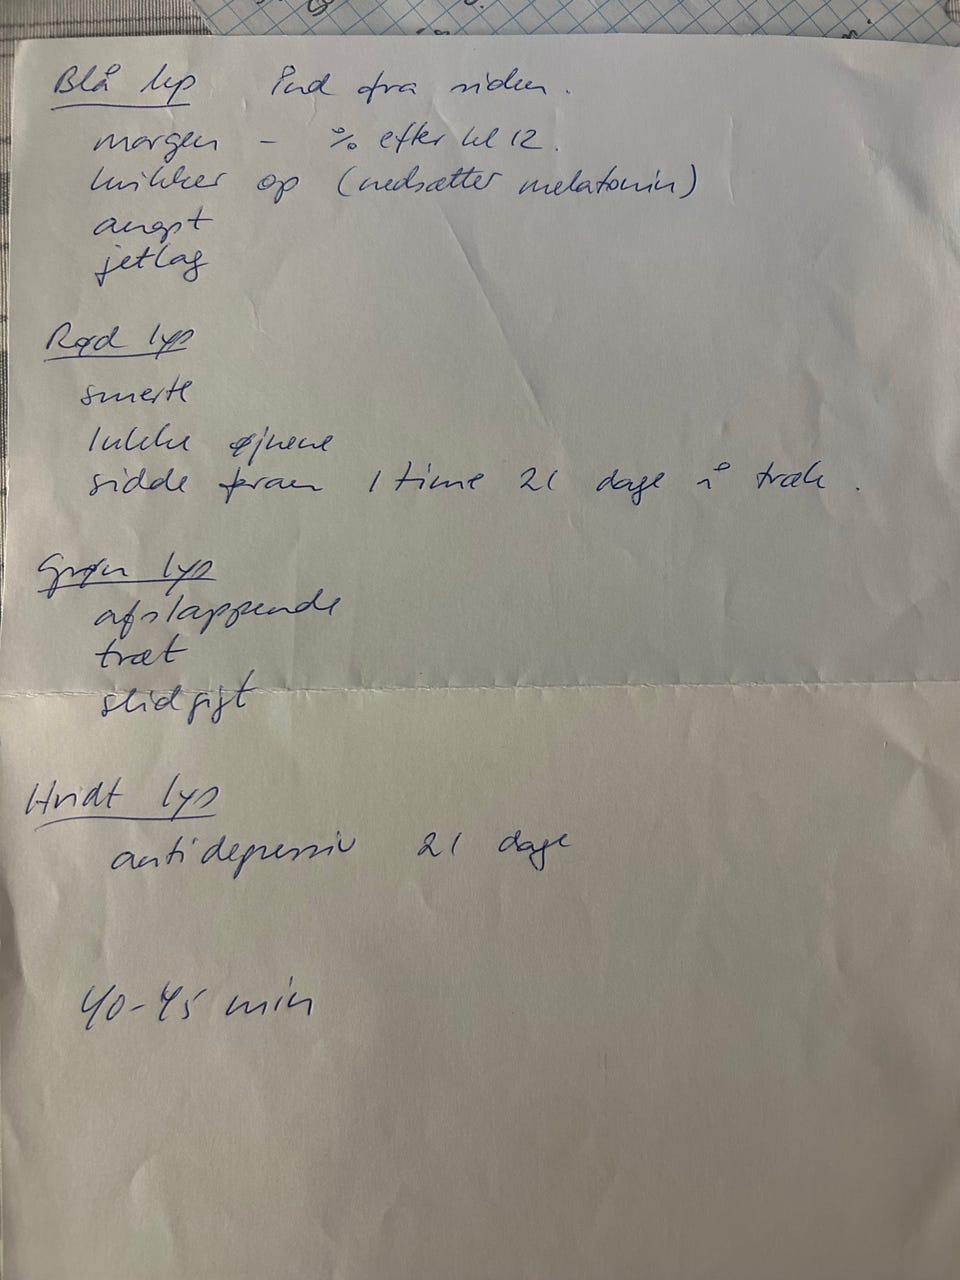 Blå lys Ind fra siden.
morgen - % efter kl 12.
kvikker op (nedsætter melatonin)
angst
jetlag
Rød lys
smerte
lukke øjnene
sidde foran 1 time 21 dage i træk.
Grøn lys
afslappende
træt
slidgigt
Hvidt lys
antidepressiv 21 dage
40-45 min